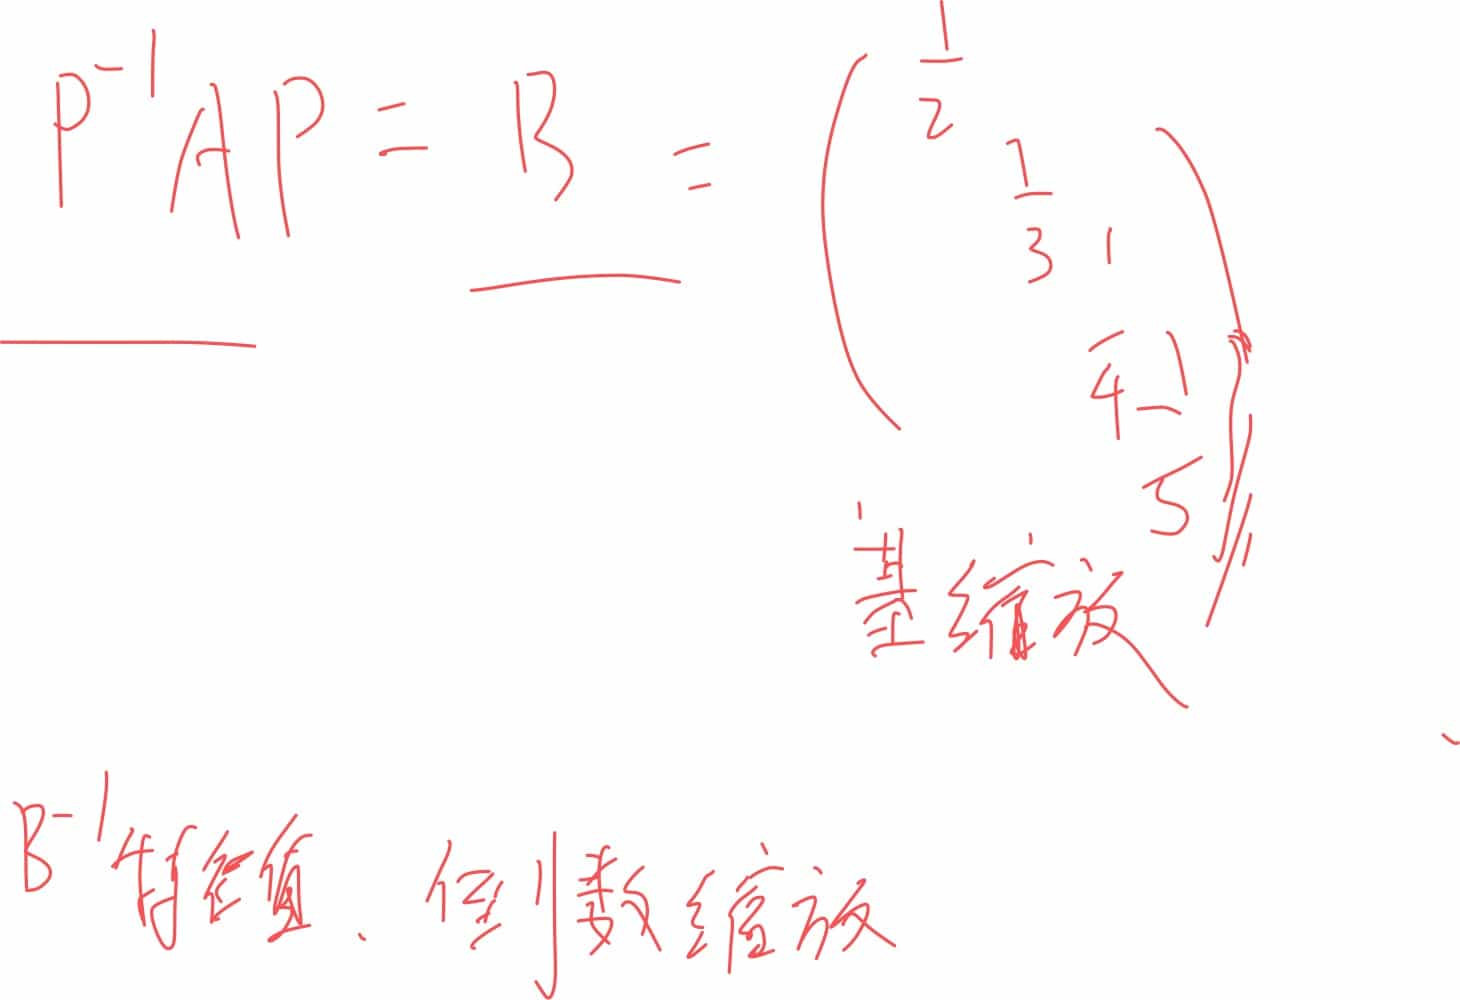 P⁻¹AP = B = ( 1/2 1/3 1/4 1/5 )
基缩放
B⁻¹特征值、倒数缩放